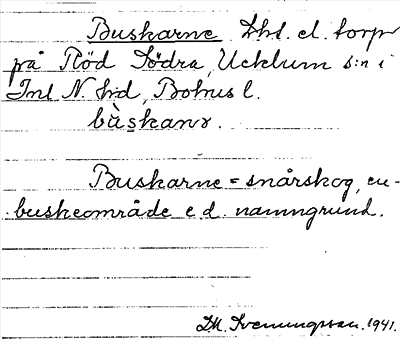 Buskarne Lht. el. torp
på Röd Södra, Ucklum s:n i
Inl N. h:d, Bohusl.
bùskanɤ.
Buskarne = snårskog, en-
buskeområde e.d. namngrund.
D.M. Svenungsson. 1941.